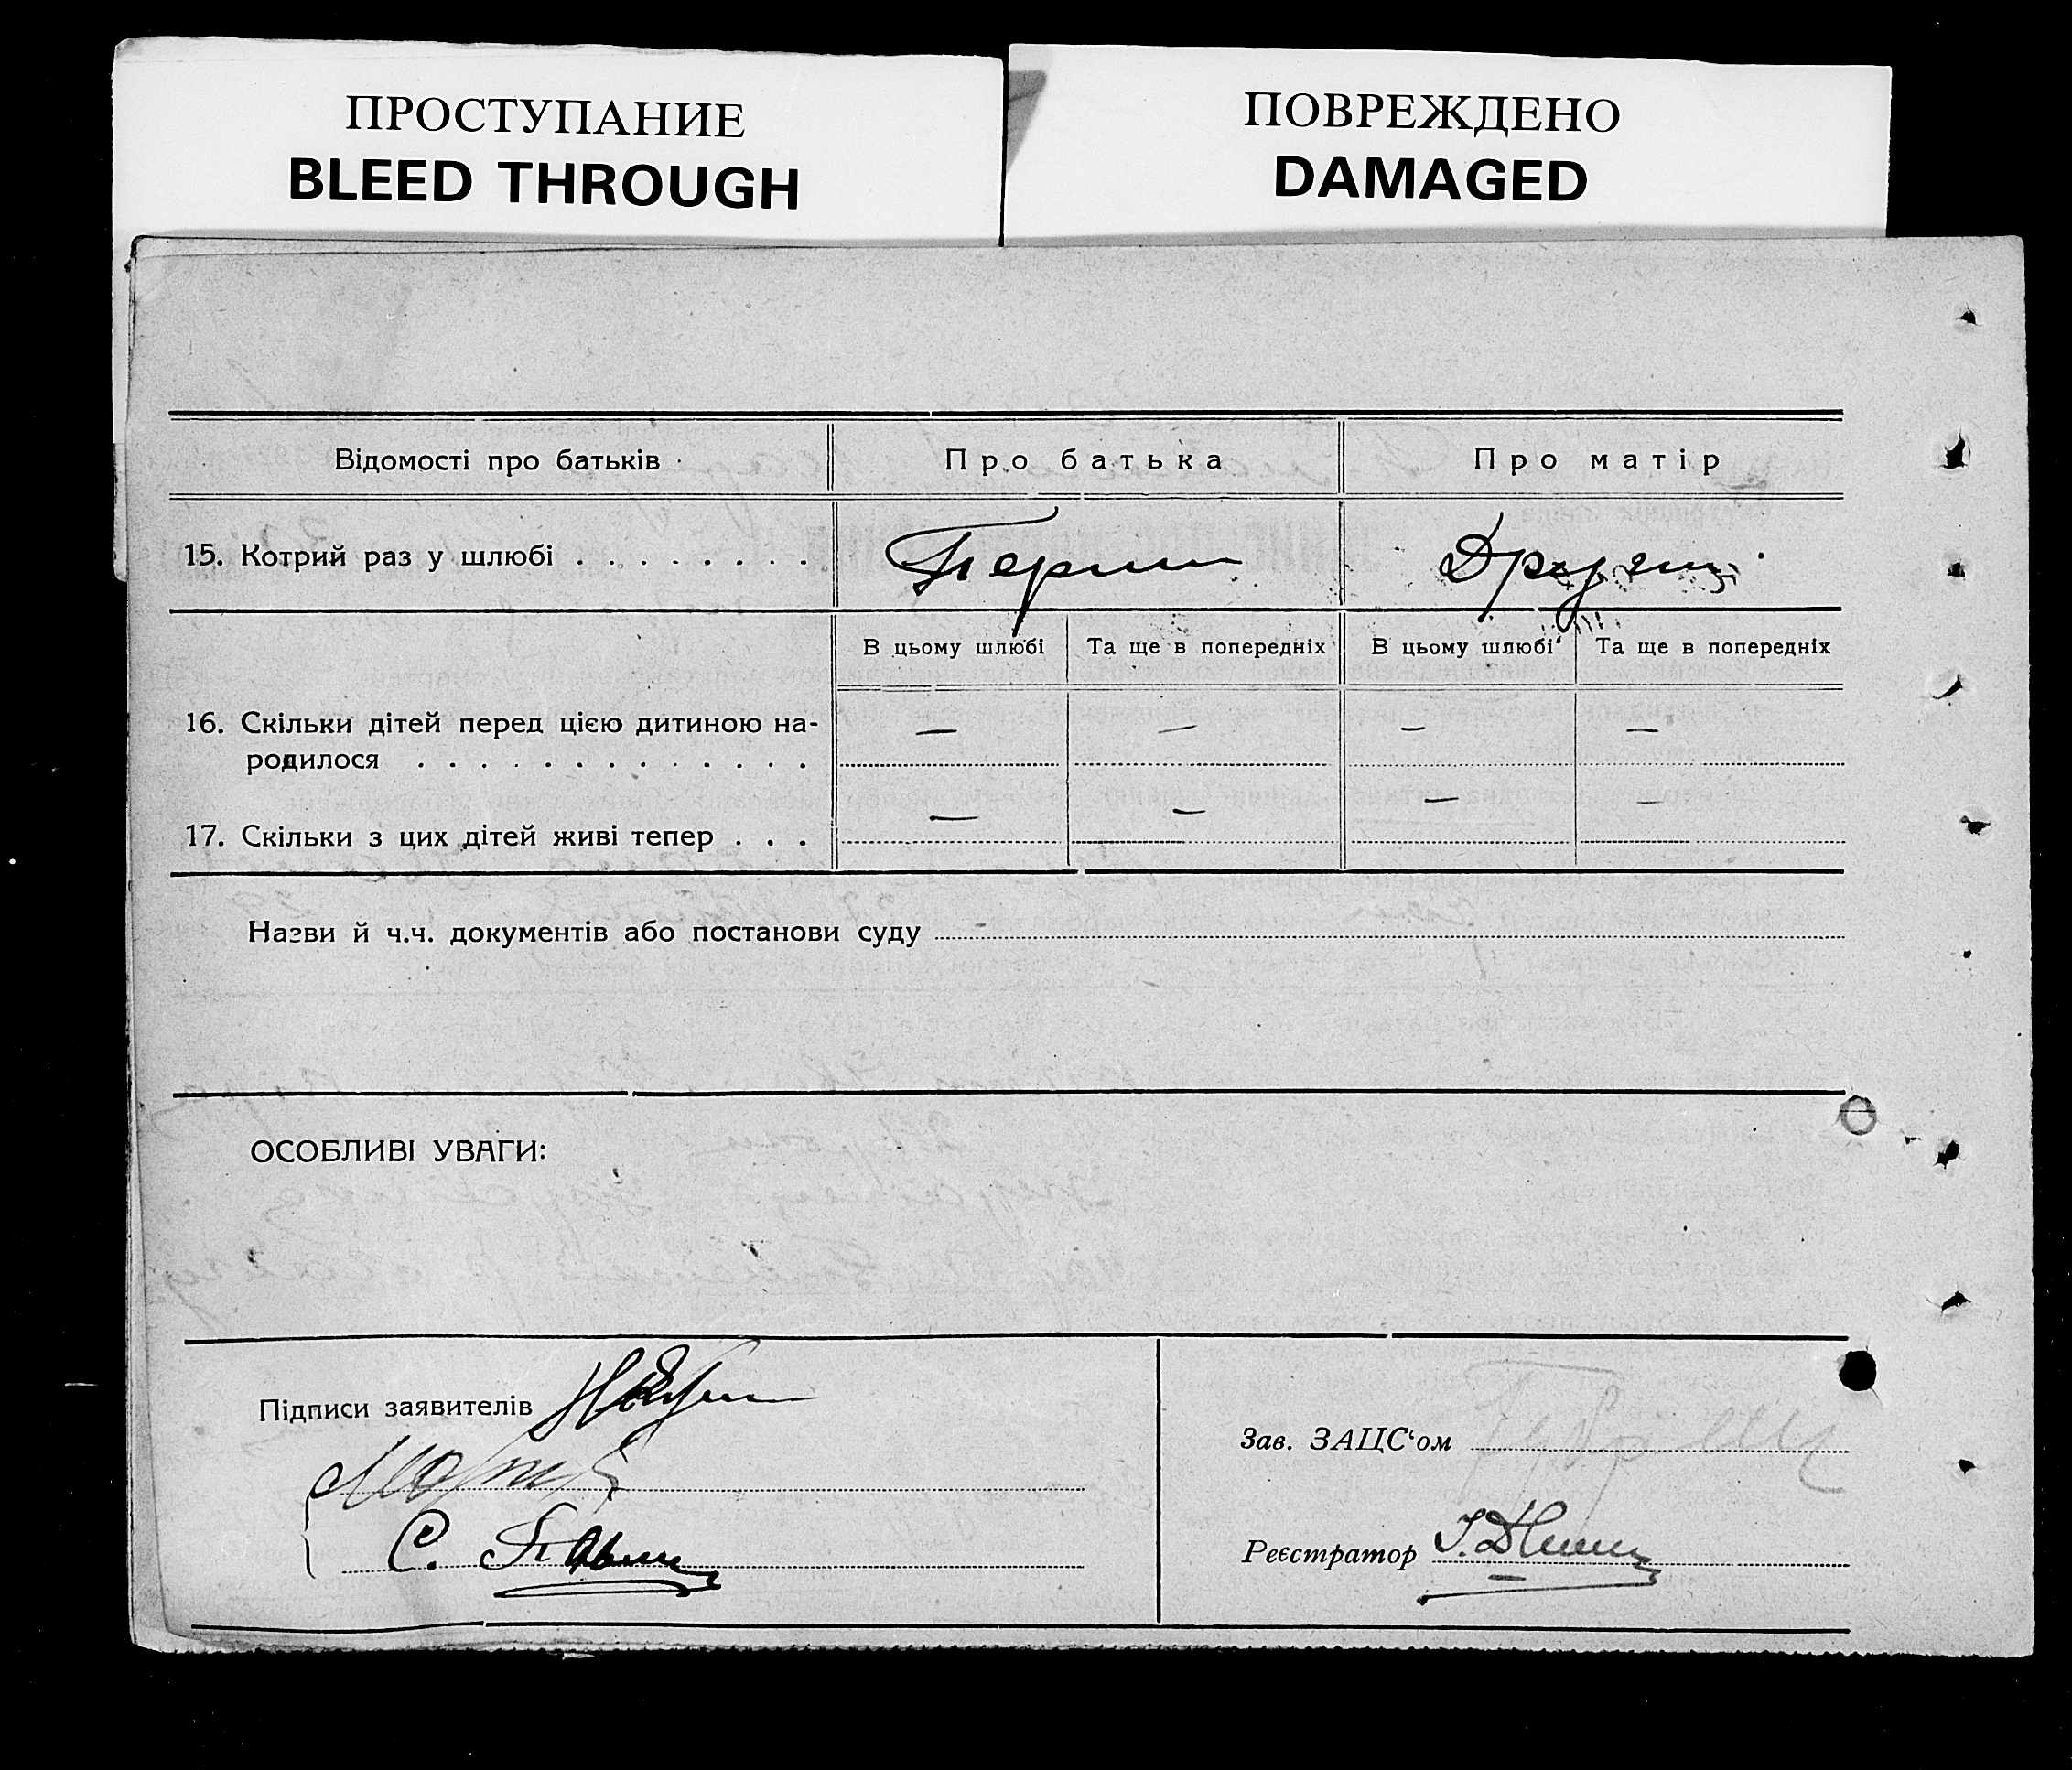 ПРОСТУПАНИЕ
BLEED THROUGH
ПОВРЕЖДЕНО
DAMAGED
Відомості про батьків
Про батька
Про матір
15. Котрий раз у шлюбі . . . . . . . .
Перший
Другий
В цьому шлюбі
Та ще в попередніх
В цьому шлюбі
Та ще в попередніх
16. Скільки дітей перед цією дитиною на-
родилося . . . . . . . . . . . . .
— — — —
17. Скільки з цих дітей живі тепер . . .
— — — —
Назви й ч.ч. документів або постанови суду
ОСОБЛИВІ УВАГИ:
Підписи заявителів
С.
Зав. ЗАЦС‘ом
Реєстратор